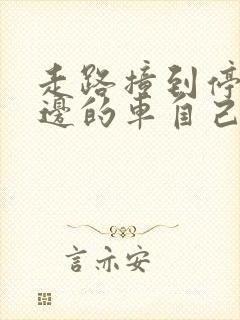 走路撞到停
邊的車自己
言亦安